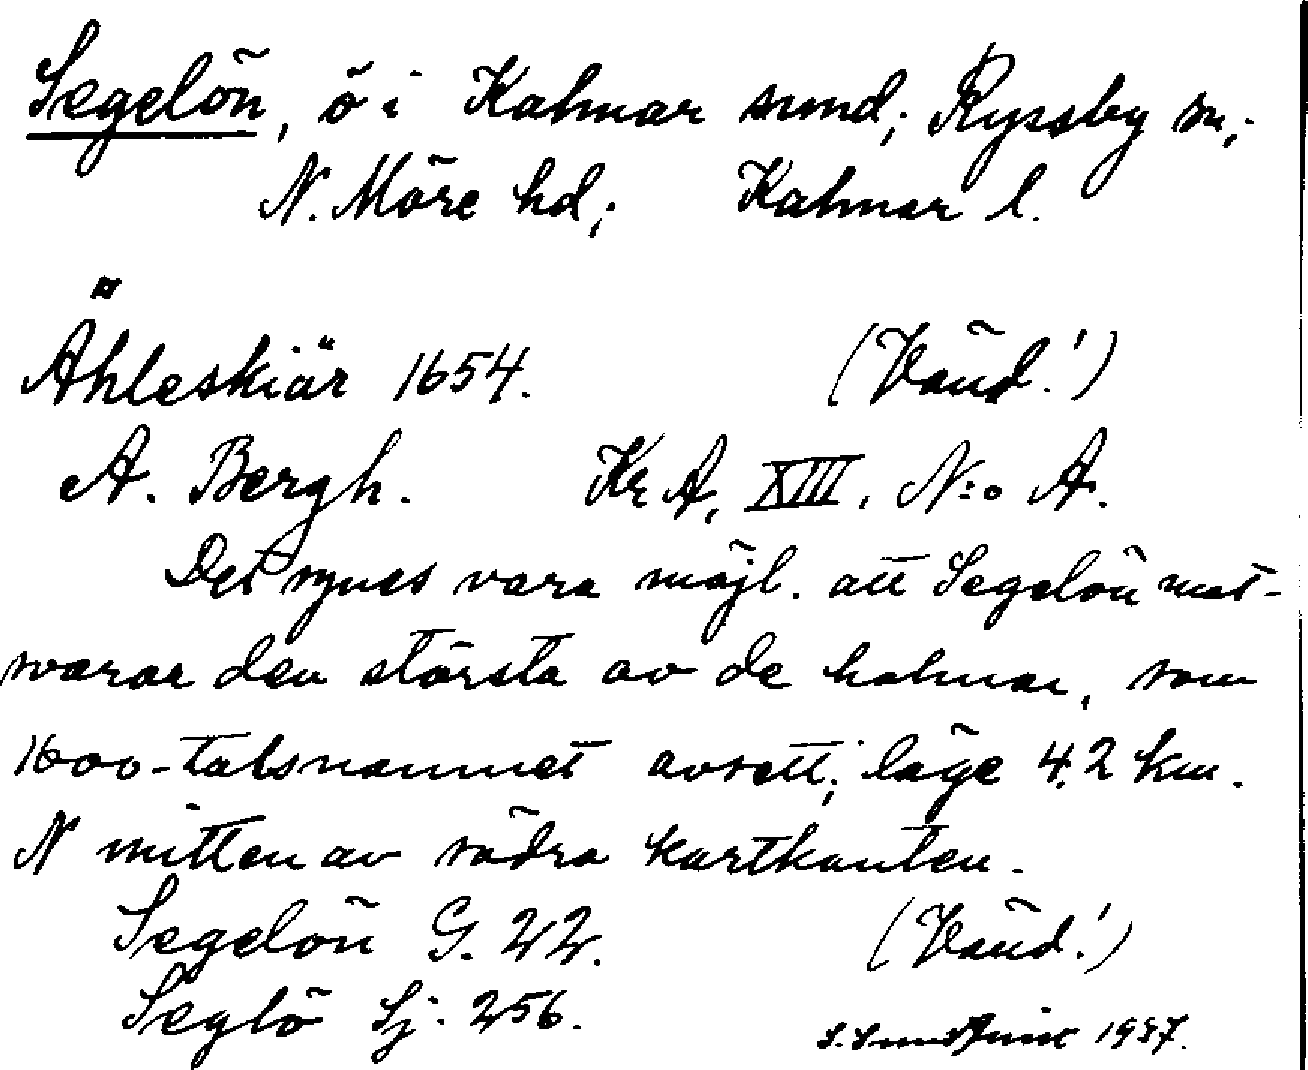 Segelön, ö i Kalmar sund; Ryssby sn;
N. Möre hd; Kalmar l.
Ähleskiär 1654. (Vänd!)
A. Bergh. KrA, XIII. N:o A.
Det synes vara möjl. att Segelön mot-
svarar den största av de holmar, som
1600-talsnamnet avsett; läge 4,2 km.
N mitten av södra kartkanten.
Segelön G. 22. (Vänd!)
Seglö Sj. 256.
1937.